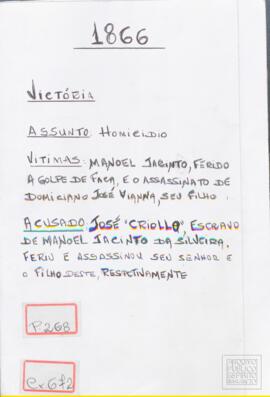 1866
VICTÓRIA
ASSUNTO: HOMICÍDIO
VITIMAS: MANOEL JACINTO, FERIDO
A GOLPE DE FACA, E O ASSASSINATO DE
DOMICIANO JOSÉ VIANNA, SEU FILHO.
ACUSADO: JOSÉ "CRIOLLO", ESCRAVO
DE MANOEL JACINTO DA SILVEIRA.
FERIU E ASSASSINOU SEU SENHOR E
O FILHO DESTE, RESPECTIVAMENTE
P268
Cx 672
ARQUIVO
PÚBLICO